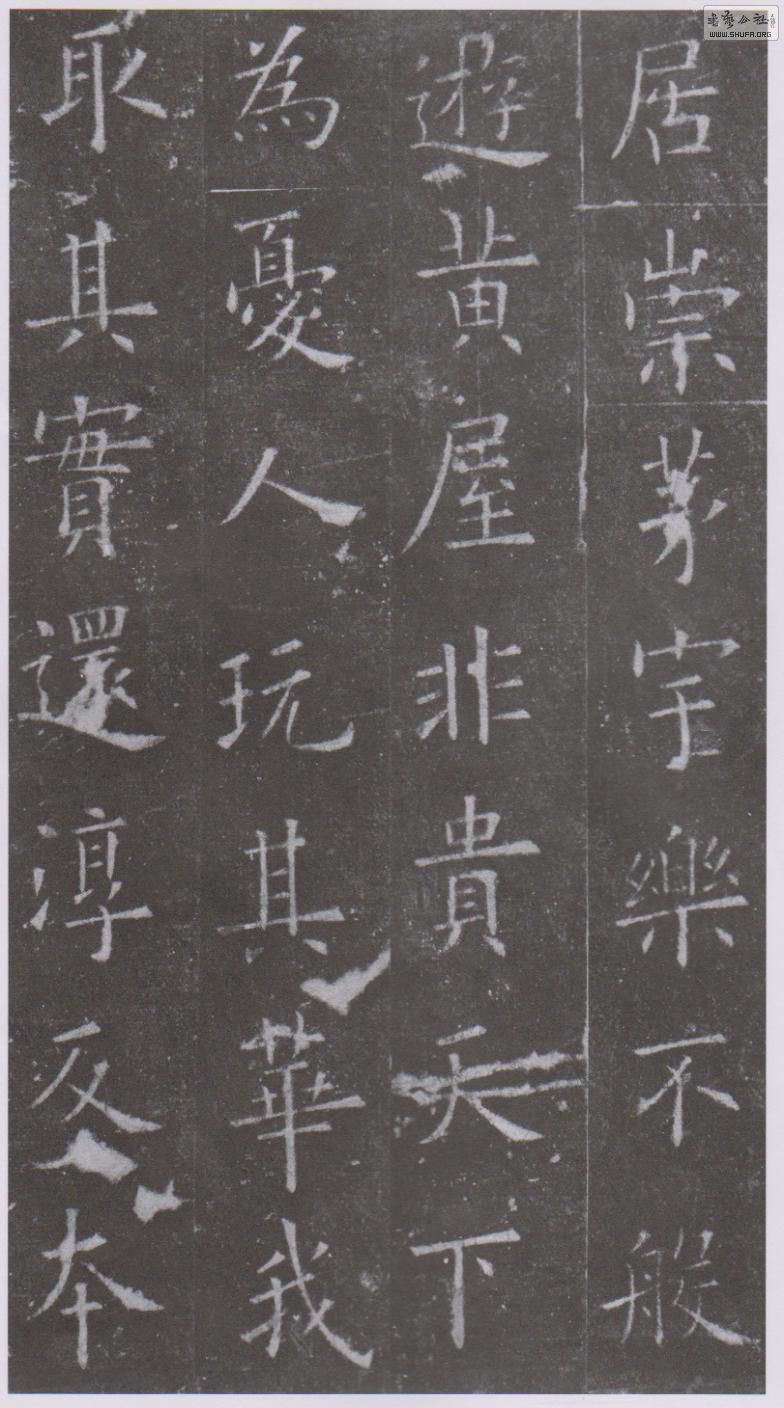 居崇茅宇樂不般
遊黃屋非貴天下
為憂人玩其華我
取其實還淳反本
WWW.SHUFA.ORG